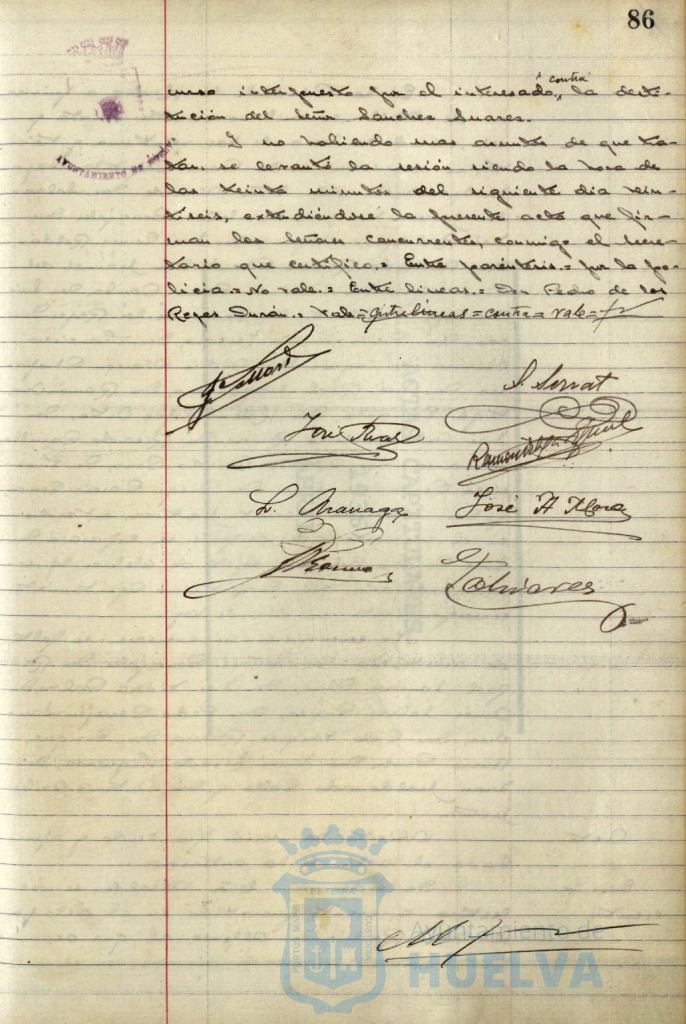 86
curso interpuesto por el interesado, contra la desti-
tución del Señor Sanchez Suarez.
Y no habiendo mas asuntos de que tra-
tar, se levantó la sesión siendo la hora de
las veinte minutos del siguiente dia vein-
tiseis, extendiéndose la presente acta que fir-
man los Señores concurrentes, conmigo el Secre-
tario que certifico.= Entre parentesis.= por la po-
licia.= No vale.= Entre lineas.= Don Pedro de los
Reyes Durán.= Vale=Entrelineas=contra=vale=
S. Serrat
José
L. Aranaga
José A Mora
AYUNTAMIENTO DE HUELVA
PORTUS MARIS ET TERRAE CUSTODIA
Ayuntamiento de
HUELVA